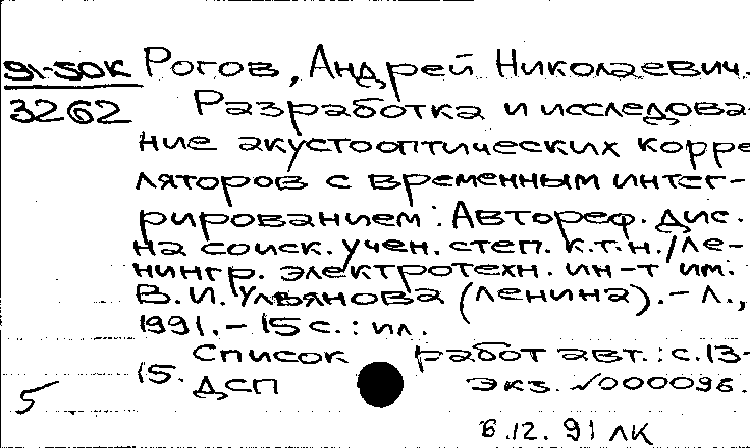 91-50К Рогов, Андрей Николаевич.
3262 Разработка и исследова-
ние акустооптических корре-
ляторов с временным интег-
рированием: Автореф. дис.
на соиск. учен. степ. к.т.н./Ле-
нингр. электротехн. ин-т им.
В.И. Ульянова (Ленина). - Л.,
1991. - 15 с. : ил.
Список работ авт.: с.13-
15.
ДСП Экз. №000096.
5
6.12.91 ЛК